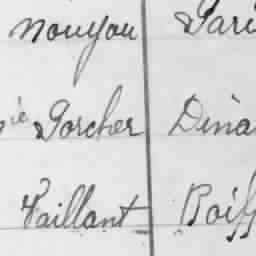 Nouyou Pari
ie Gorcher Dina
Vaillant Boiss